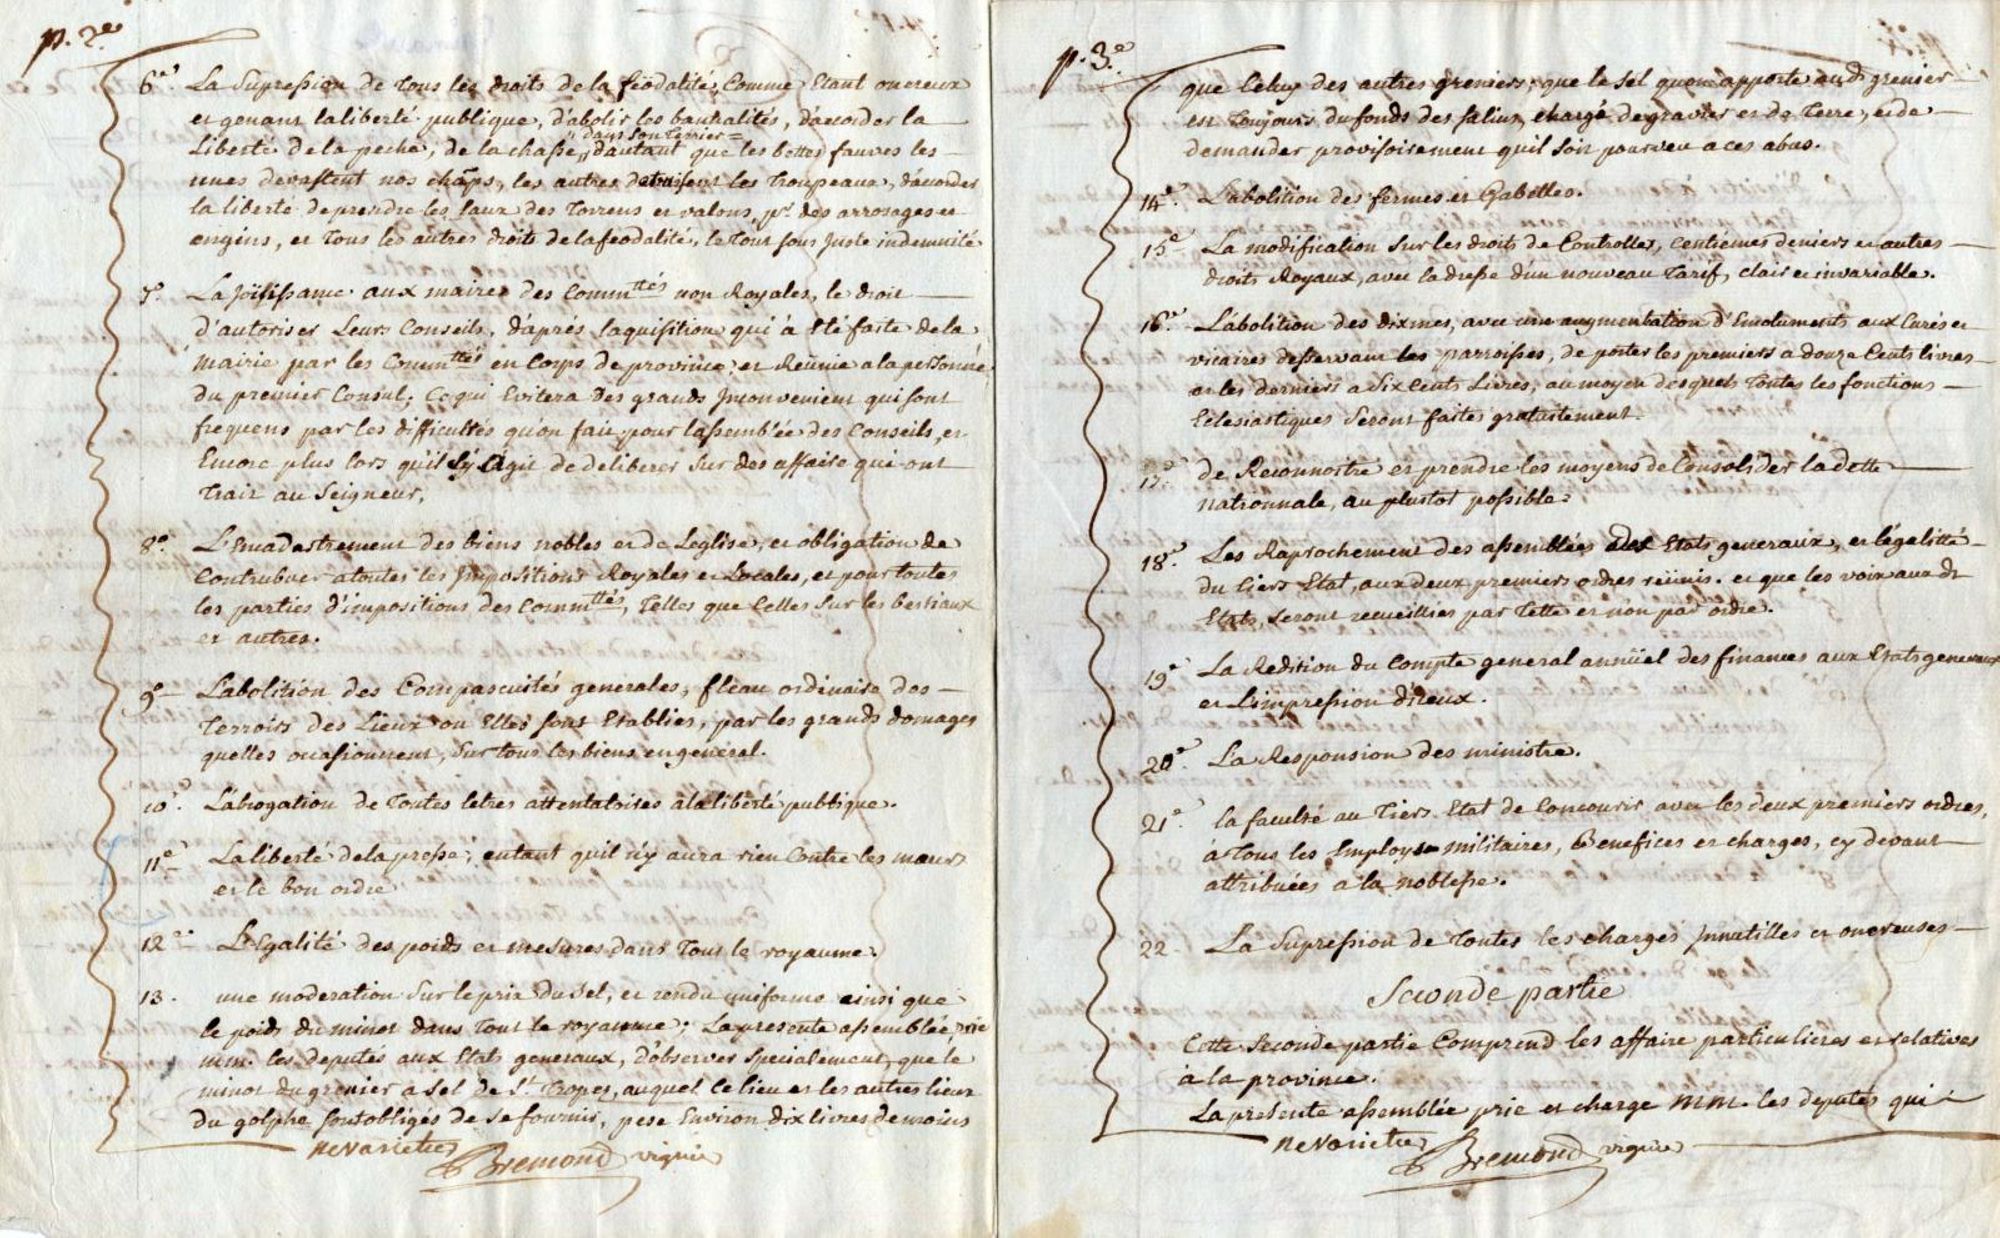 p. 2e
6e. La Supression de tous les droits de la feodalité, Comme Etant onereux
et genant la liberté publique, d'abolir les bannalités, d'accorder la
" dans son terrier =
Liberté de la peche, de la chasse, " dautant que les bettes fauves les
unes devastent nos chãps, les autres detruisent les troupeaux, d'accorder
la liberté de prendre les Eaux des Torrens et valons, pr. des arrosages et
engins, et tous les autres droits de la feodalité, le tout sous Juste indemnité
7e. La joüissance aux maires des Commttés non Royales, le droit
d'autoriser Leurs Conseils, d'aprés laquisition qui à Eté faite de la
mairie par les Commttés en Corps de province, et Reünie a la personne
du premier Consul; Ce qui Evitera des grands Inconvenient qui sont
frequens par les difficultés qu'on fait pour lassemblée des Conseils, et
Encore plus lors qu'il s'y Agit de deliberer sur des affaire qui ont
trait au Seigneur,
8e. L'Encadastrement des biens nobles et de Leglise, et obligation de
Contribuer a toutes les Impositions Royales et Locales, et pour toutes
les parties d'impositions des Commttés, Telles que Celles sur les bestiaux
et autres.
9e L'abolition des Compascuités generales, fleau ordinaire des
Terroirs des Lieux ou Elles sont Etablies, par les grands domages
quelles occasionnent, sur tous les biens en general.
10e. L'abrogation de toutes letres attentatoires à la liberté publique.
11e La liberté de la presse; entant quil n'y aura rien Contre les mœurs
et le bon ordre
12e L'Egalité des poids et mesures dans tout le royaume.
13. une moderation sur le prix du sel, et rendu uniforme ainsi que
le poids du minot dans tout le royaume; La presente assemblée, prie
mm. les deputés aux Etats generaux, d'observer specialement, que le
minot du grenier a sel de St. Tropez, auquel ce lieu et les autres lieux
du golphe sont obligés de se fournir, pese Environ dix livres de moins
ne varietur Bremond viguier
p. 3e.
que Celuy des autres greniers; que le sel quon apporte aud. grenier
est toujours du fonds des salins, chargé de gravier et de terre, et de
demander provisoirement quil soit pourveu a ces abus.
14e. L'abolition des fermes et Gabelles.
15e La modification sur les droits de Controlle, centiemes deniers et autres
droits Royaux, avec ladresse d'un nouveau tarif, clair et invariable.
16e. L'abolition des dixmes, avec une augmentation d'Emoluments aux Curés et
vicaires desservant les parroisses, de porter les premiers a douze Cents livres
et les derniers a Six Cents Livres, au moyen desquels toutes les fonctions
Eclesiastiques seront faites gratuitement
17e. de Reconnoitre et prendre les moyens de Consolider la dette
nationnale, au plustot possible.
18e. Les Raprochement des assemblées des Etats generaux, et légalitté
du tiers Etat, aux deux premiers ordres reünis. et que les voix aux dt
Etats, seront recueillies par tette et non par ordre.
19e La Redition du Compte general annüel des finances aux Etats generaux
et L'impression d'iceux.
20e. La Responsion des ministre.
21e. la faculté au Tiers Etat de Concourir avec les deux premiers ordres,
à tous les Employs militaires, Benefices et charges, cy devant
attribuées a la noblesse.
22 - La Supression de toutes les charges Innutilles et onereuses
Seconde partie
Cette Seconde partie Comprend les affaire particulieres et relatives
à la province.
La presente assemblée prie et charge mm. les deputés qui
ne varietur Bremond viguier